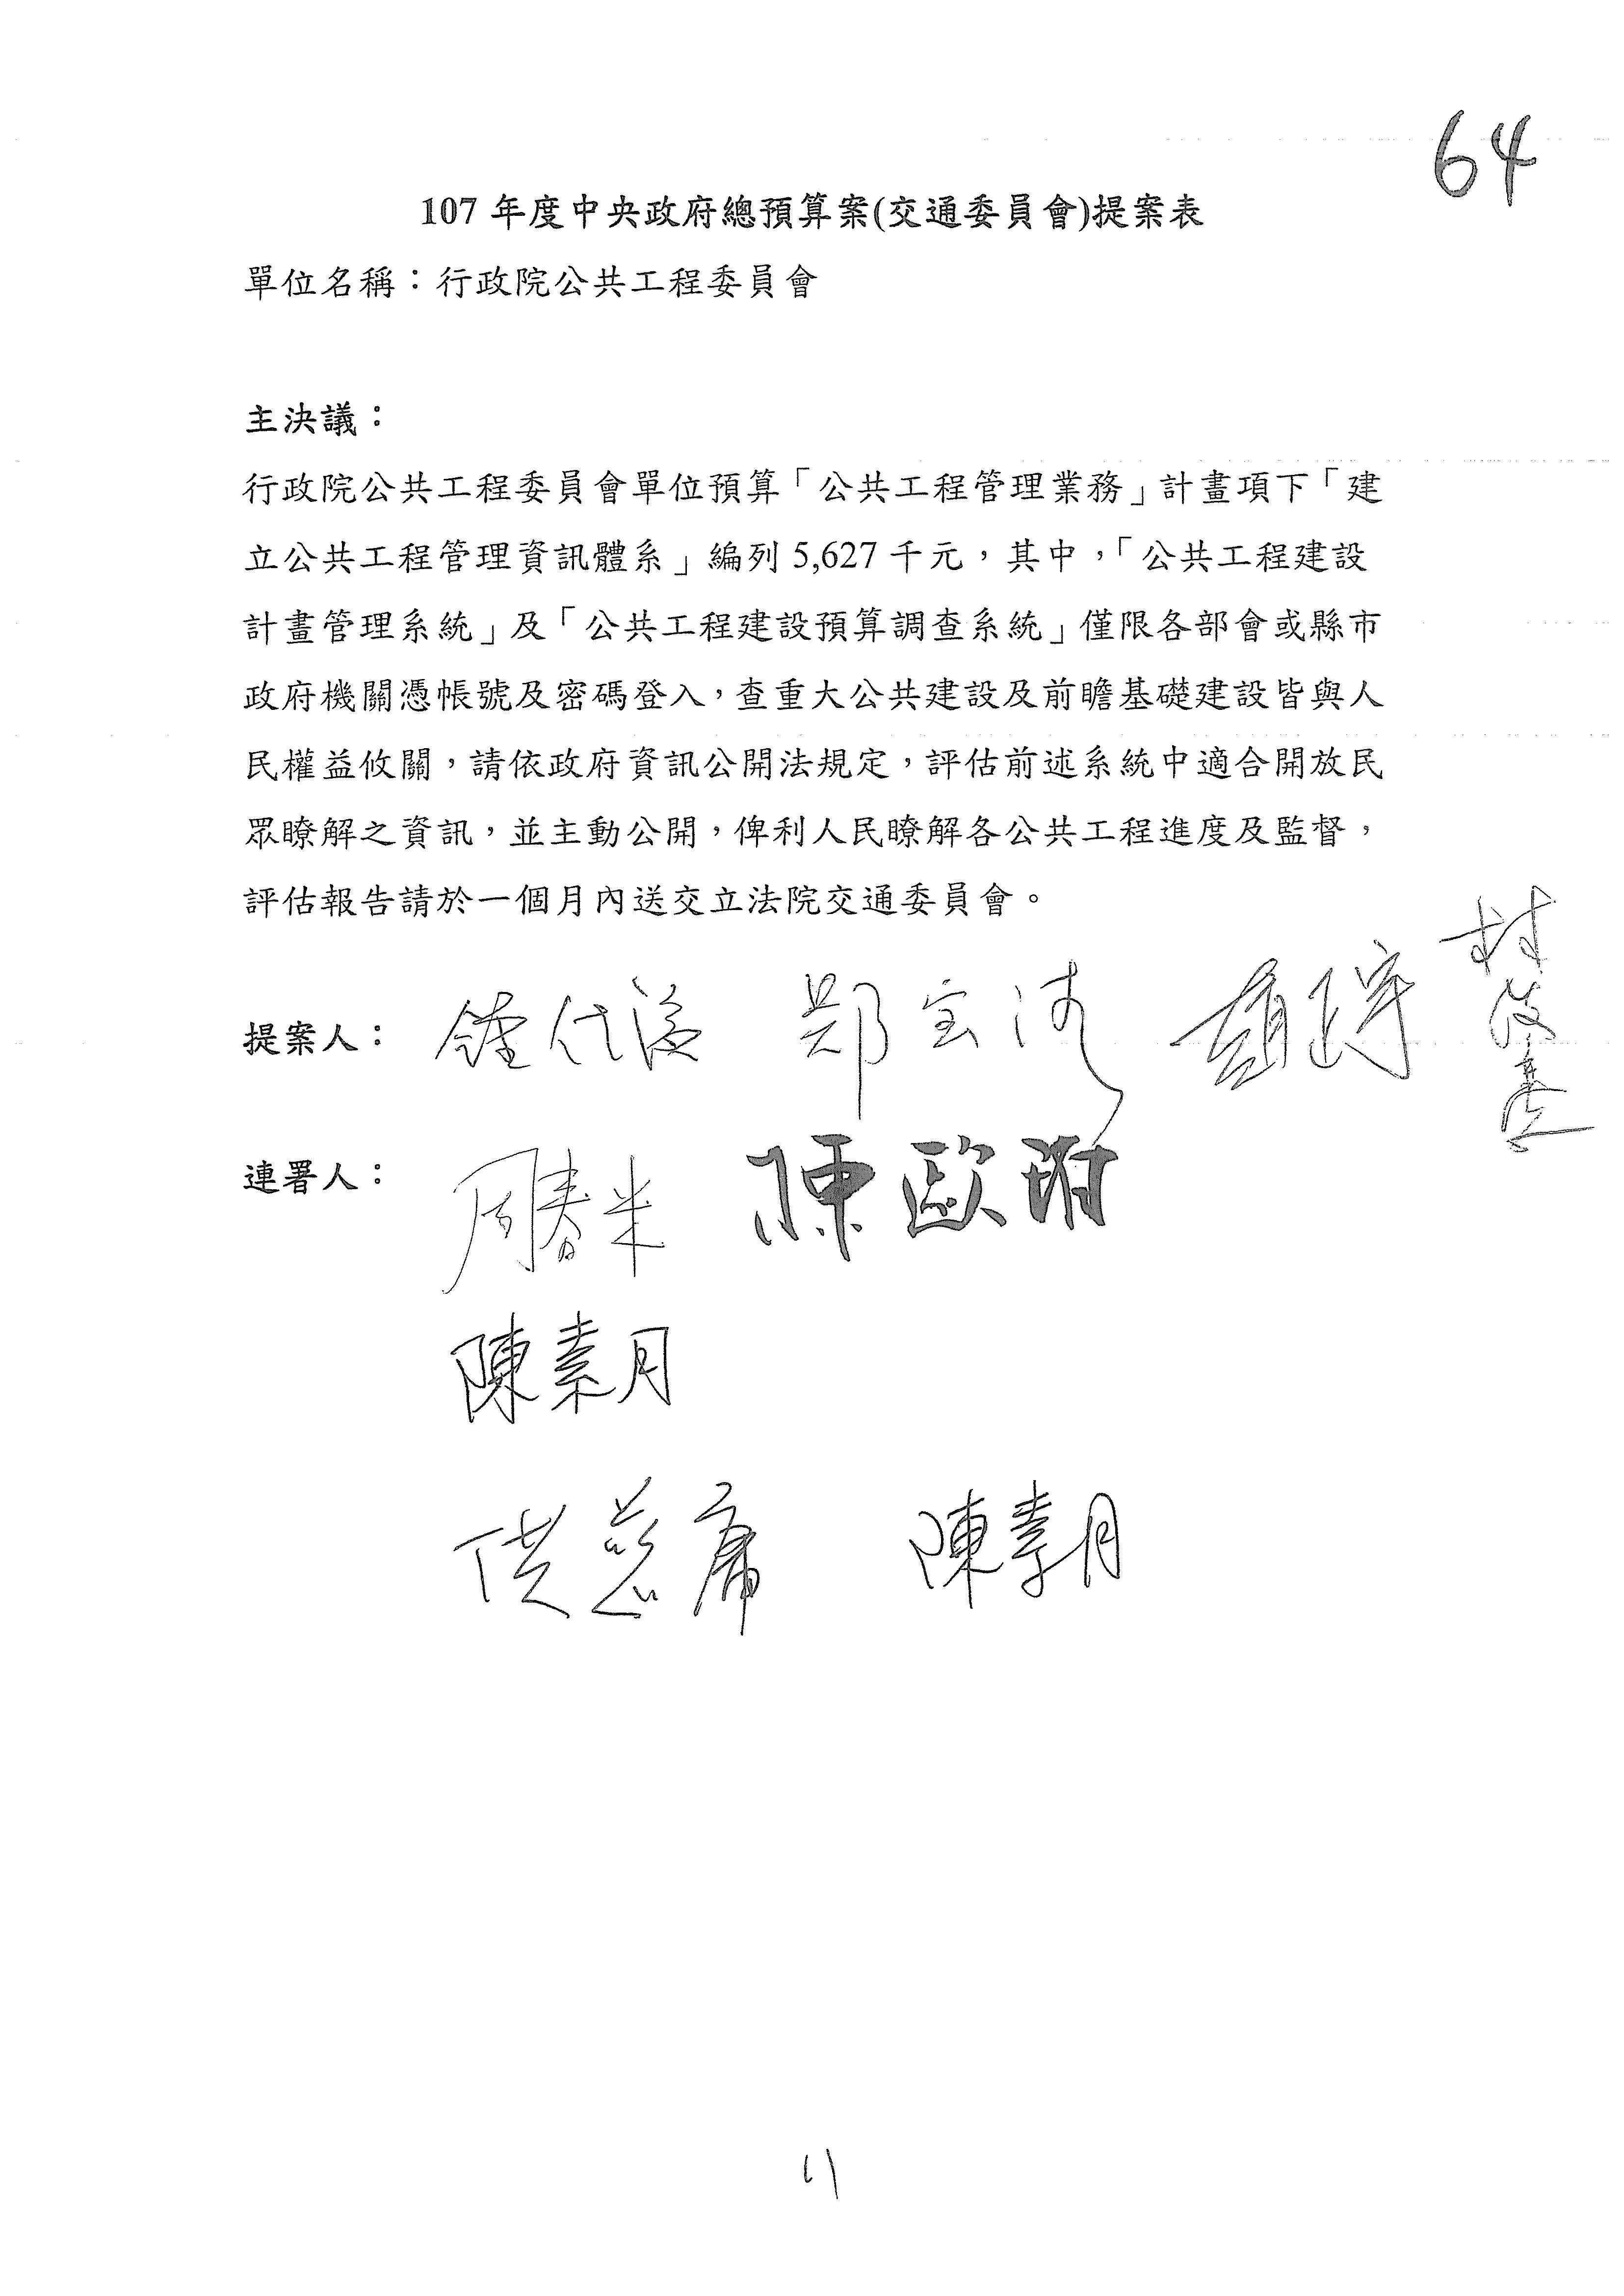 64
107 年度中央政府總預算案(交通委員會)提案表
單位名稱：行政院公共工程委員會
主決議：
行政院公共工程委員會單位預算「公共工程管理業務」計畫項下「建
立公共工程管理資訊體系」編列 5,627 千元，其中，「公共工程建設
計畫管理系統」及「公共工程建設預算調查系統」僅限各部會或縣市
政府機關憑帳號及密碼登入，查重大公共建設及前瞻基礎建設皆與人
民權益攸關，請依政府資訊公開法規定，評估前述系統中適合開放民
眾瞭解之資訊，並主動公開，俾利人民瞭解各公共工程進度及監督，
評估報告請於一個月內送交立法院交通委員會。
提案人： 鍾佳濱 鄭宝清 林俊憲
連署人： 周春米 陳歐珀
陳素月
洪慈庸 陳素月